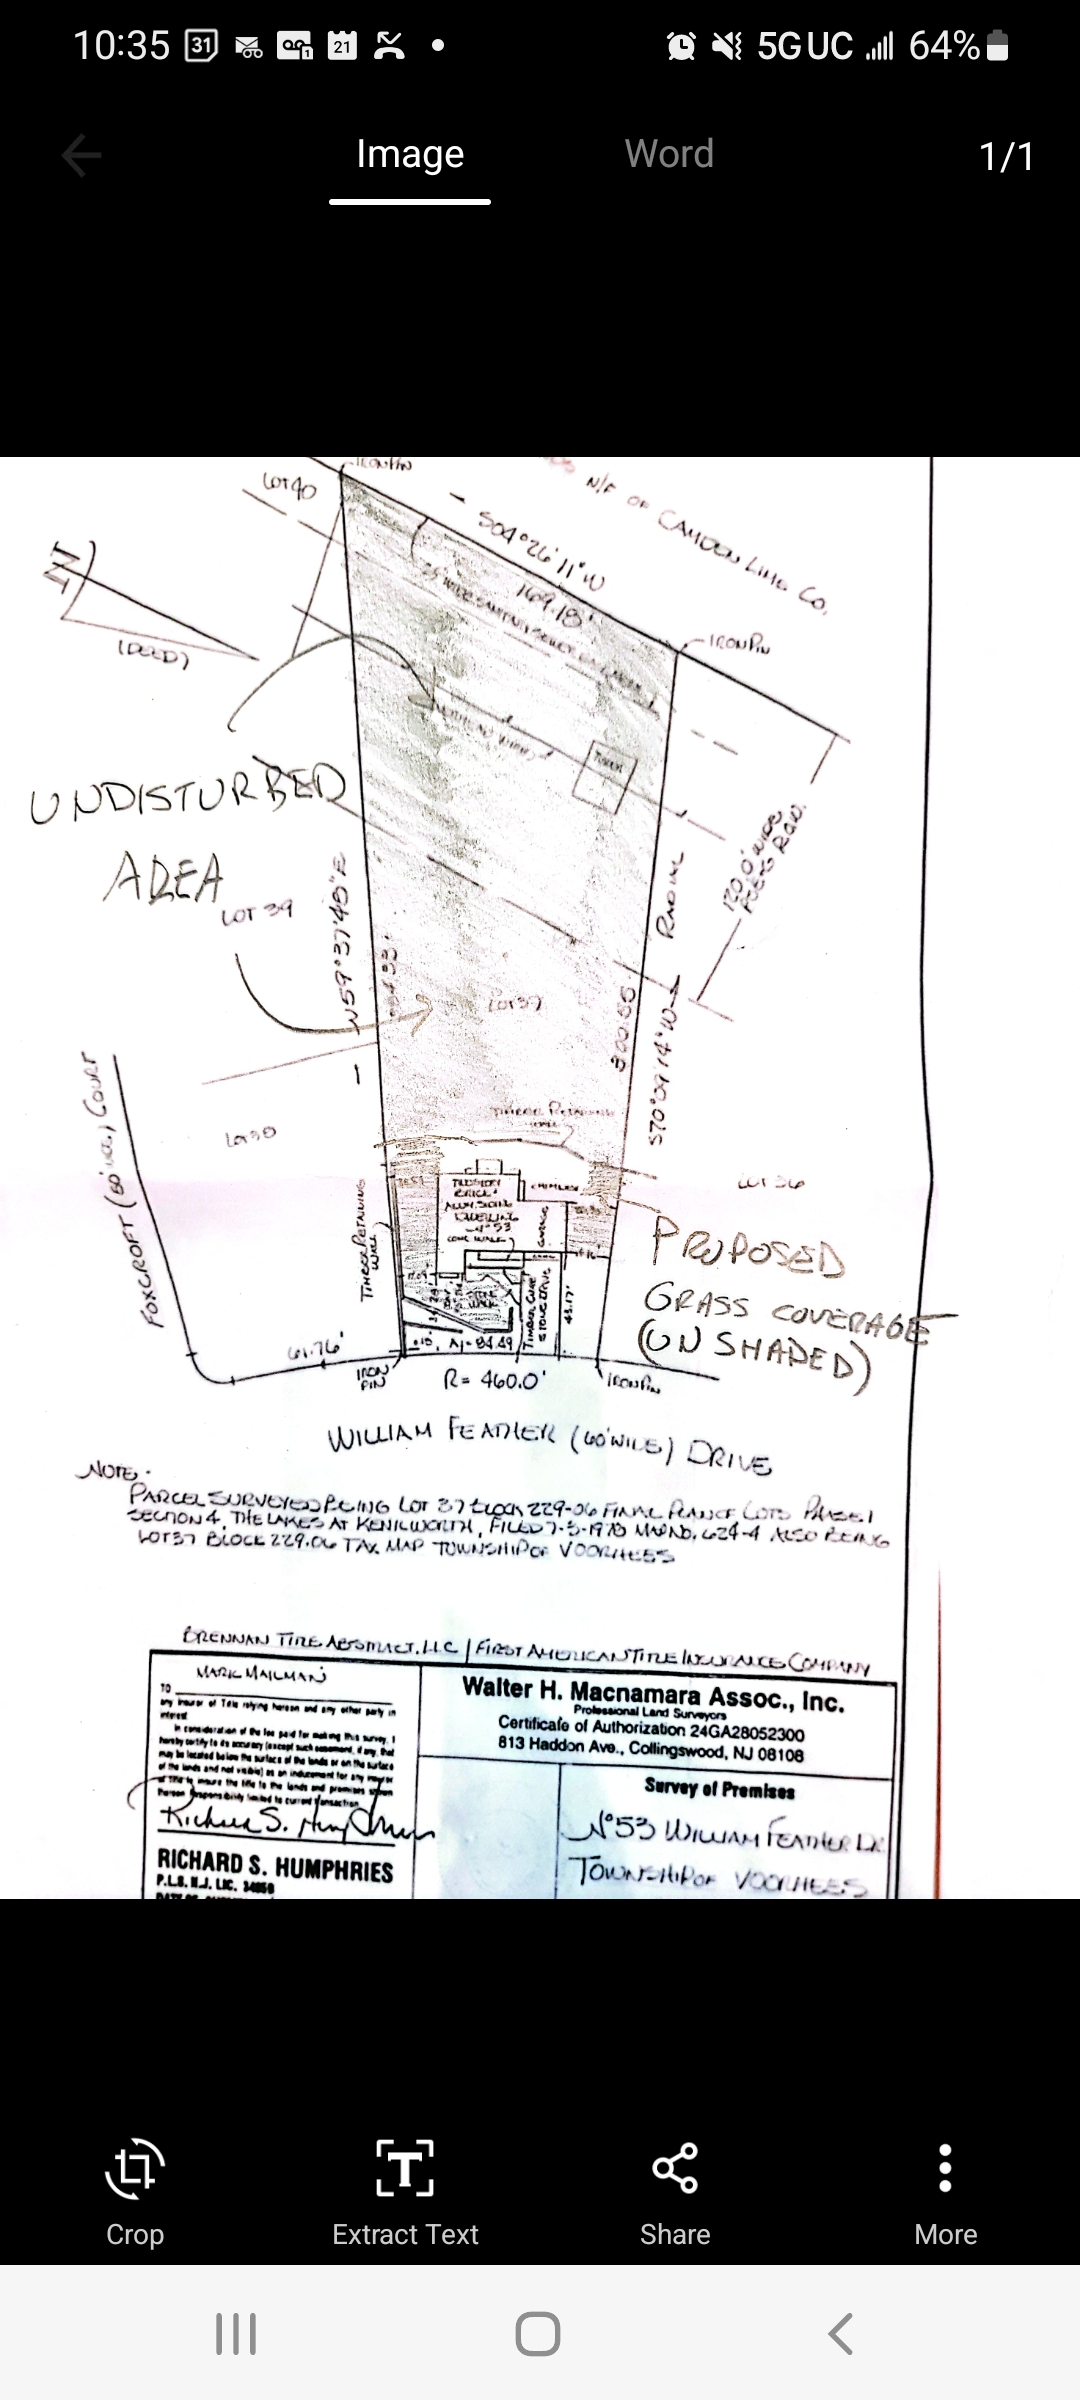 10:35 31 1 21 5G UC 64%
Image Word 1/1
IRON PIN
LOT 40
N/F OF CAMDEN LIME CO.
S04°26'11"W
169.18'
N
(DEED)
IRON PIN
TOWER
UNDISTURBED
AREA
LOT 39
N59°37'48"E
RADIAL
120.0' WIDE
LOT 37
S70°09'14"W
FOXCROFT (50' WIDE) COURT
TIMBER RETAINING
WALL
TIMBER RETAINING
WALL
LOT 36
TWO STORY
BRICK &
ALUM. SIDING
DWELLING
Nº 53
CONC. WALK
CHIMNEY
GARAGE
PROPOSED
GRASS COVERAGE
(UNSHADED)
STONE DRIVE
61.76'
IRON
PIN
R= 460.0'
IRON PIN
WILLIAM FEATHER (60' WIDE) DRIVE
NOTE:
PARCEL SURVEYED BEING LOT 37 BLOCK 229-06 FINAL PLAN OF LOTS PHASE 1
SECTION 4, THE LAKES AT KENILWORTH, FILED 7-3-1978 MAP NO. 624-4 ALSO BEING
LOT 37 BLOCK 229.06 TAX MAP TOWNSHIP OF VOORHEES
BRENNAN TITLE ABSTRACT, LLC | FIRST AMERICAN TITLE INSURANCE COMPANY
MARK MAILMAN
TO
any insurer of Title relying hereon and any other party in
interest
In consideration of the fee paid for making this survey, I
hereby certify to its accuracy (except such easement, if any, that
may be located below the surface of the lands or on the surface
of the lands and not visible) as an inducement for any insurer
of Title to insure the title to the lands and premises shown
thereon. Responsibility limited to current transaction.
Richard S. Humphries
RICHARD S. HUMPHRIES
P.L.S. N.J. LIC. 34859
Walter H. Macnamara Assoc., Inc.
Professional Land Surveyors
Certificate of Authorization 24GA28052300
813 Haddon Ave., Collingswood, NJ 08108
Survey of Premises
Nº 53 WILLIAM FEATHER DR.
TOWNSHIP OF VOORHEES
Crop Extract Text Share More